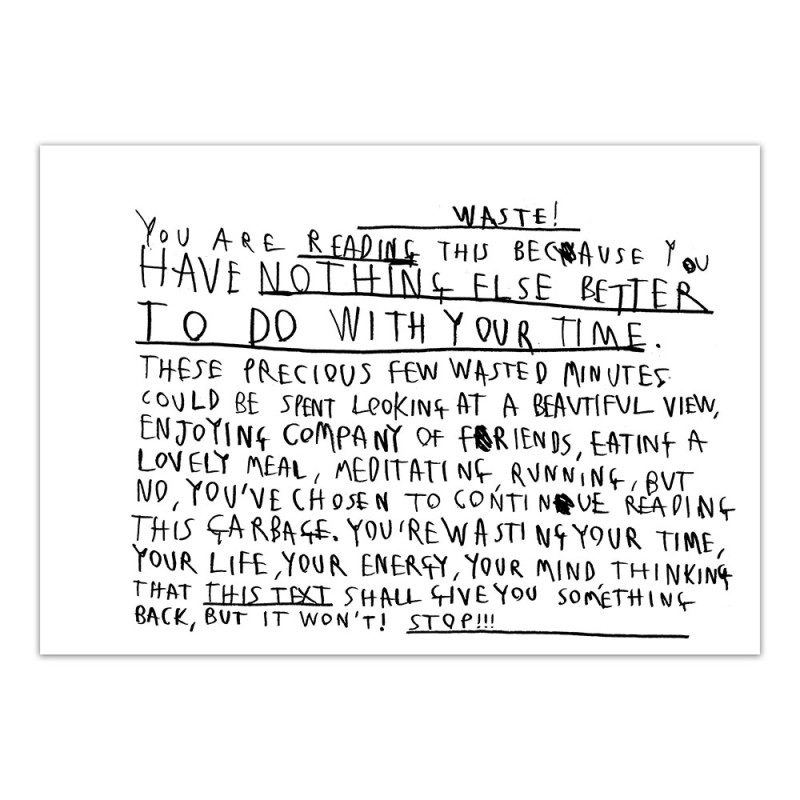 WASTE!
YOU ARE READING THIS BECAUSE YOU
HAVE NOTHING ELSE BETTER
TO DO WITH YOUR TIME.
THESE PRECIOUS FEW WASTED MINUTES
COULD BE SPENT LOOKING AT A BEAUTIFUL VIEW,
ENJOYING COMPANY OF FRIENDS, EATING A
LOVELY MEAL, MEDITATING, RUNNING, BUT
NO, YOU'VE CHOSEN TO CONTINUE READING
THIS GARBAGE. YOU'RE WASTING YOUR TIME,
YOUR LIFE, YOUR ENERGY, YOUR MIND THINKING
THAT THIS TEXT SHALL GIVE YOU SOMETHING
BACK, BUT IT WON'T! STOP!!!